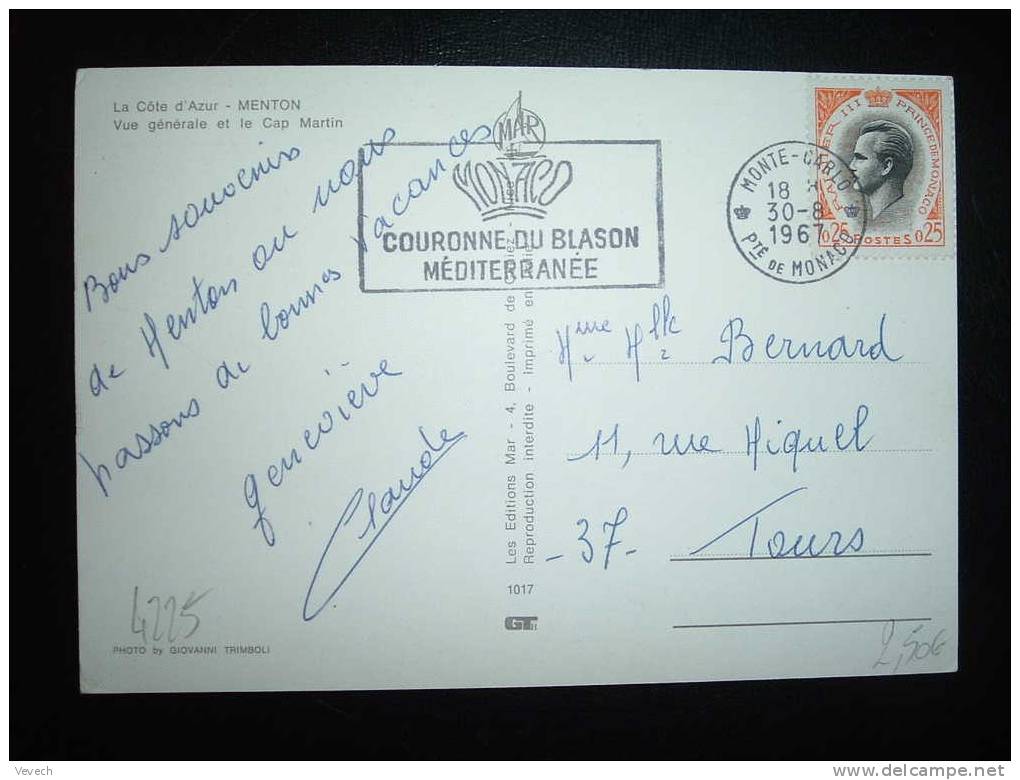 La Côte d'Azur - MENTON
Vue générale et le Cap Martin
Bons souvenirs
de Menton ou nous
passons de bonnes vacances
geneviève
Claude
4225
PHOTO by GIOVANNI TRIMBOLI
MAR
MONACO
COURONNE DU BLASON
MÉDITERRANÉE
Les Editions Mar - 4, Boulevard de
Reproduction interdite - Imprimé en
1017
GT
RAINIER III PRINCE DE MONACO
0,25 POSTES 0,25
MONTE-CARLO
18
30-8
1967
Pté DE MONACO
Mme Mlle Bernard
11, rue Miquel
-37- Tours
2,50€
Vevech
delcampe.net